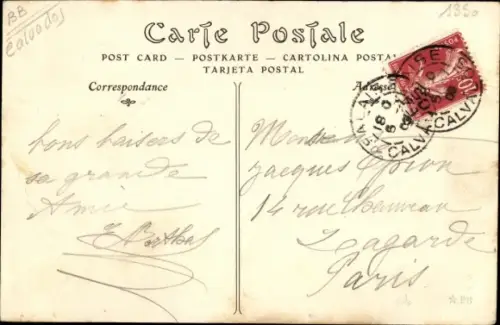 BB
Calvados
1350
Carte Postale
POST CARD — POSTKARTE — CARTOLINA POSTAL
TARJETA POSTAL
Correspondance
bons baisers de
sa grande
Amie
Adresse
Monsieur
Jacques
14 rue Chauveau
Lagarde
Paris
CALVA